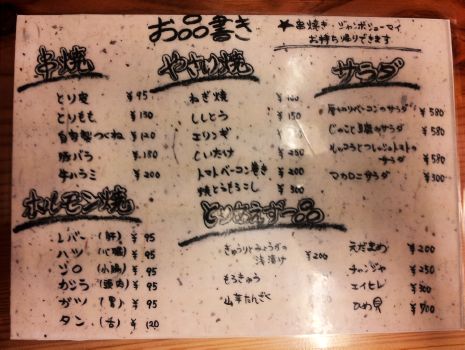 お品書き
★串焼き・ジャンボシューマイ
お持ち帰りできます
串焼
とり皮 ¥95
とりもも ¥150
自家製つくね ¥120
豚バラ ¥180
牛ハラミ ¥200
やさい焼
ねぎ焼 ¥100
ししとう ¥150
エリンギ
しいたけ ¥250
トマトベーコン巻き ¥200
焼とうもろこし ¥300
サラダ
厚切りベーコンのサラダ ¥580
じゃこと豆腐のサラダ ¥580
サラダ ¥580
マカロニサラダ ¥300
ホルモン焼
レバー(肝) ¥95
ハツ(心臓) ¥95
¥95
カシラ(頭肉) ¥95
ガツ(胃) ¥95
タン(舌) ¥120
とりあえず一品
きゅうりとみょうがの
浅漬け ¥200
もろきゅう
山芋たんざく
えだまめ ¥200
チャンジャ ¥250
エイヒレ
ひめ貝